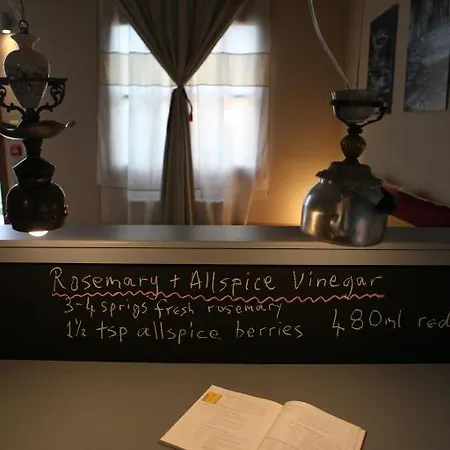 Rosemary + Allspice Vinegar
3-4 sprigs fresh rosemary
1½ tsp allspice berries 480ml red